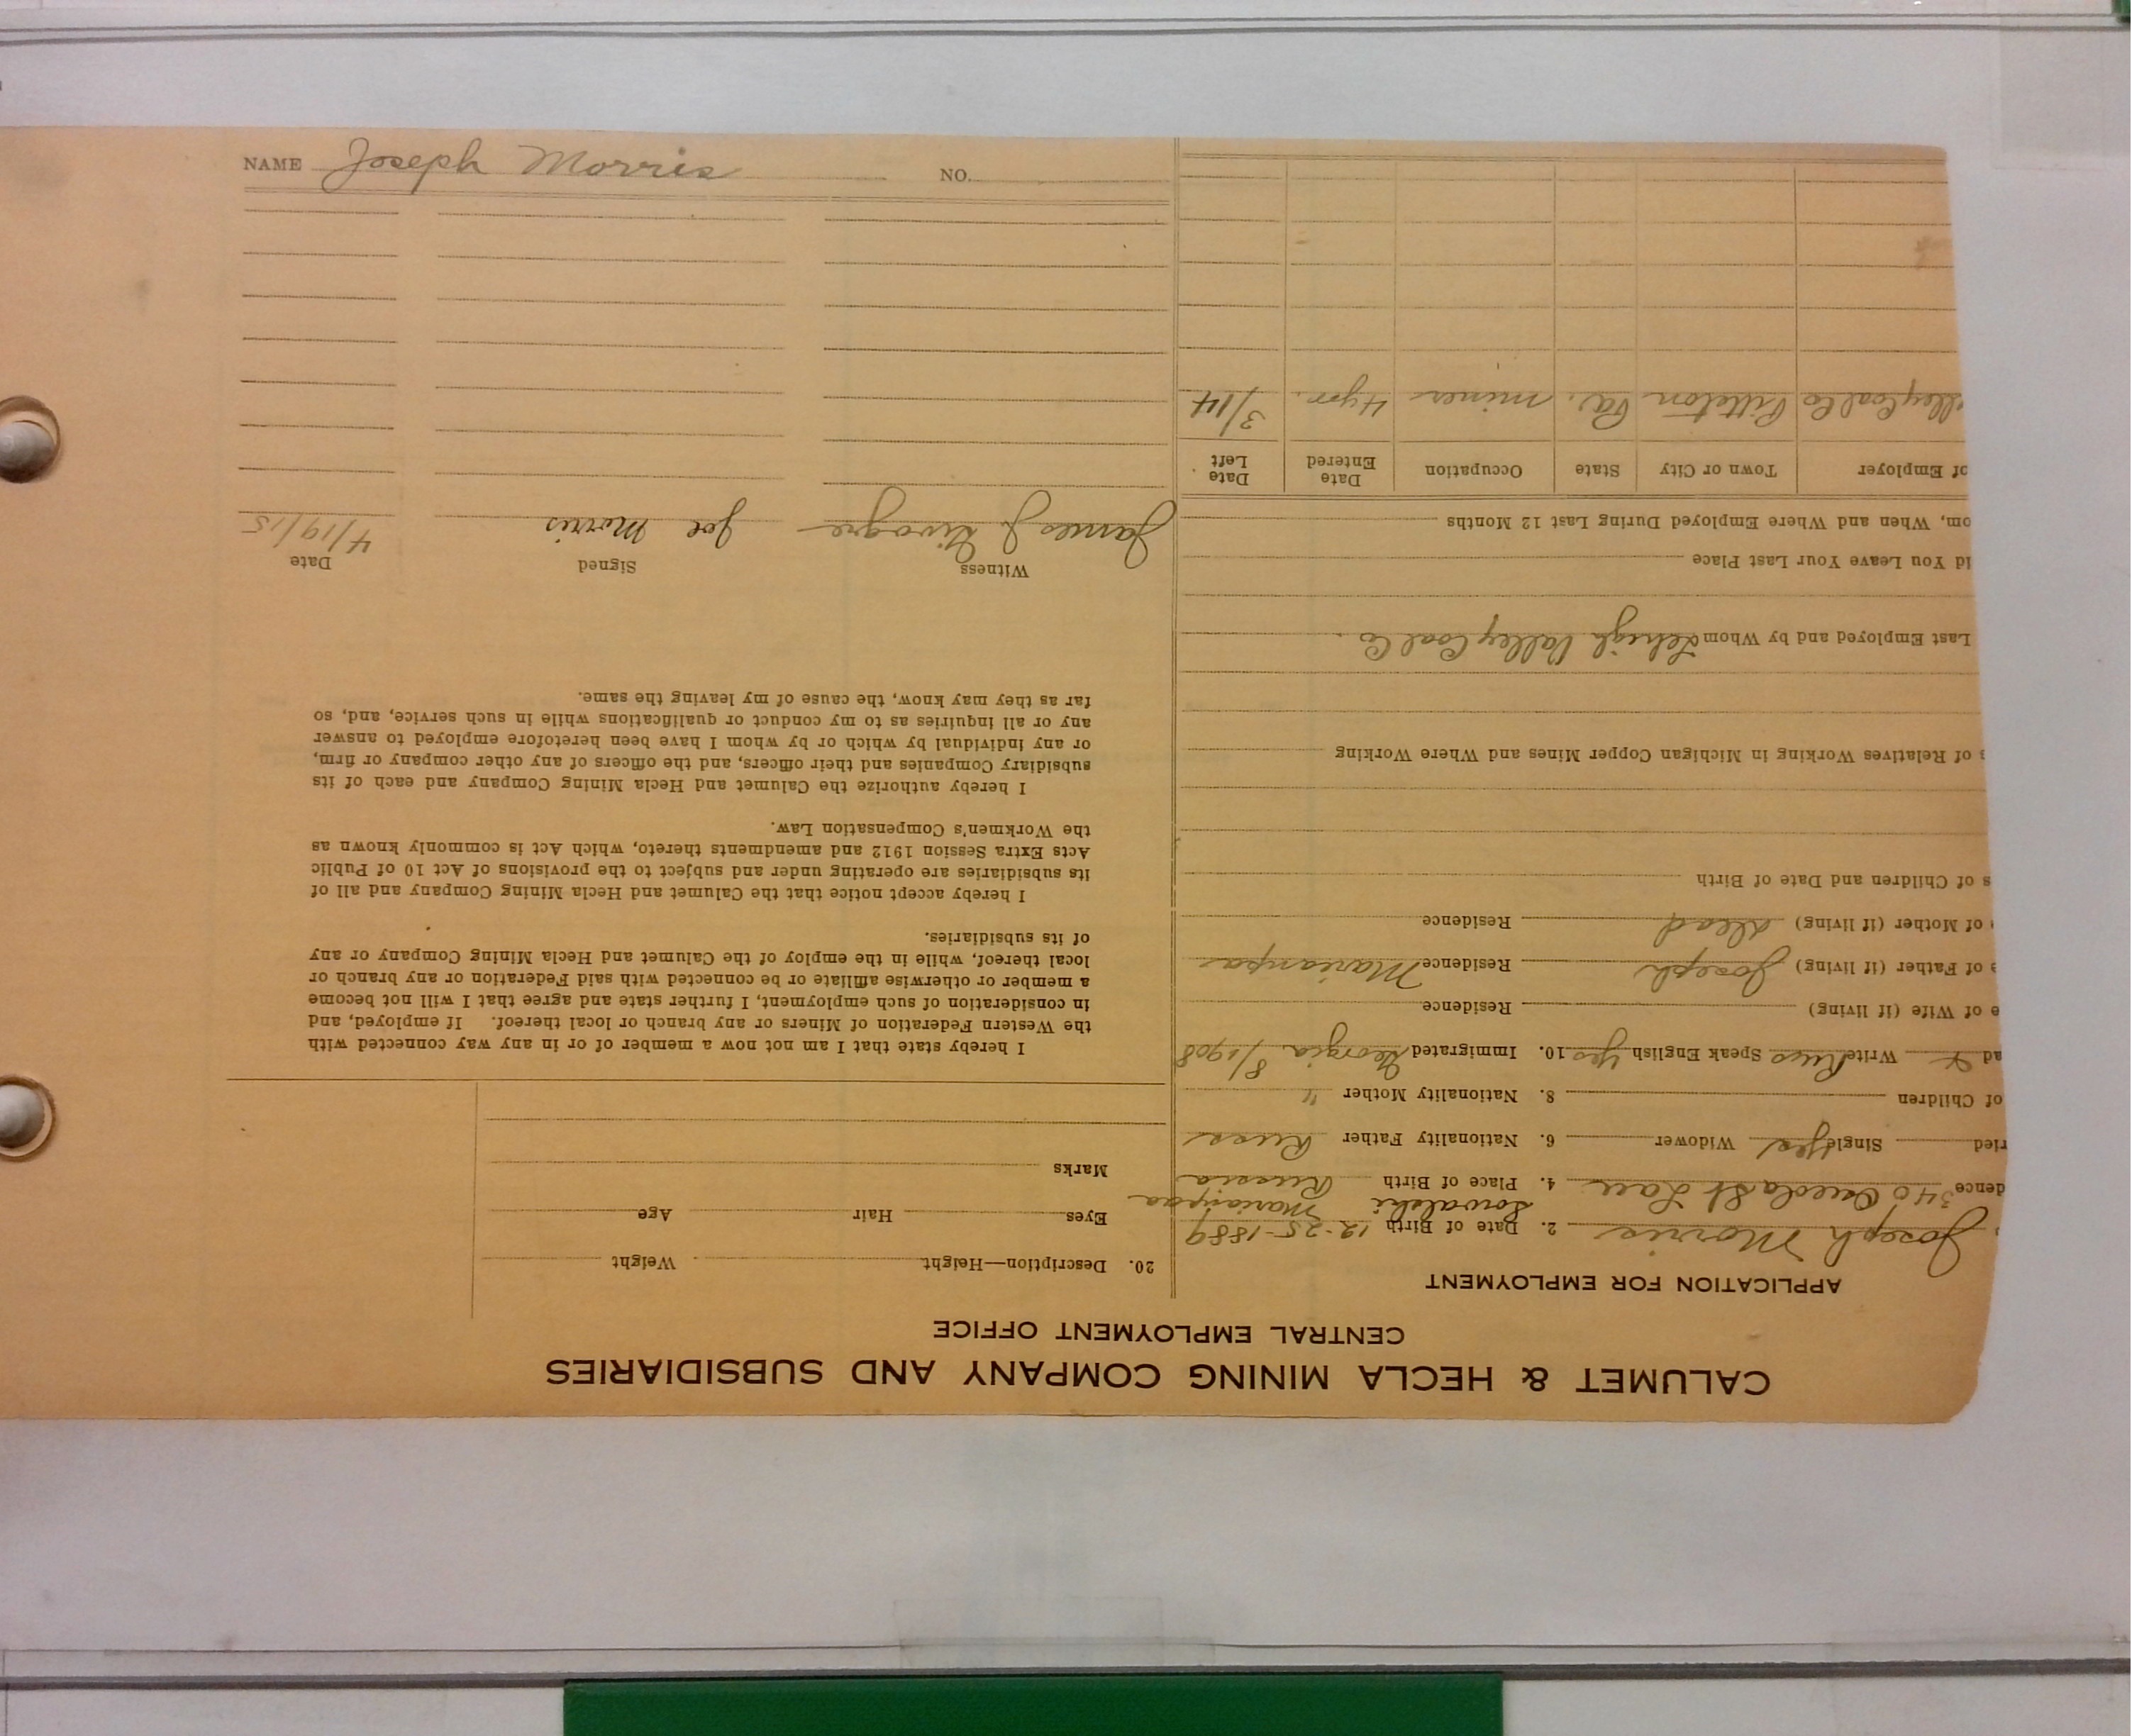 CALUMET & HECLA MINING COMPANY AND SUBSIDIARIES
CENTRAL EMPLOYMENT OFFICE
APPLICATION FOR EMPLOYMENT
Joseph Morris 2. Date of Birth 12-25-1889
dence 340 Osceola St Laur 4. Place of Birth Russia
ried Single Yes Widower 6. Nationality Father Russ
of Children 8. Nationality Mother "
ad Write Russ Speak English yes 10. Immigrated Georgia 8/1908
e of Wife (if living) Residence
e of Father (if living) Joseph Residence Mariampa
e of Mother (if living) dead Residence
s of Children and Date of Birth
s of Relatives Working in Michigan Copper Mines and Where Working
Last Employed and by Whom Lehigh Valley Coal Co.
id You Leave Your Last Place
om, When and Where Employed During Last 12 Months
of Employer Town or City State Occupation Date Entered Date Left
lley Coal Co Pittston Pa. miner 4 yrs. 3/14
20. Description—Height Weight
Eyes Hair Age
Marks
I hereby state that I am not now a member of or in any way connected with
the Western Federation of Miners or any branch or local thereof. If employed, and
in consideration of such employment, I further state and agree that I will not become
a member or otherwise affiliate or be connected with said Federation or any branch or
local thereof, while in the employ of the Calumet and Hecla Mining Company or any
of its subsidiaries.
I hereby accept notice that the Calumet and Hecla Mining Company and all of
its subsidiaries are operating under and subject to the provisions of Act 10 of Public
Acts Extra Session 1912 and amendments thereto, which Act is commonly known as
the Workmen's Compensation Law.
I hereby authorize the Calumet and Hecla Mining Company and each of its
subsidiary Companies and their officers, and the officers of any other company or firm,
or any individual by which or by whom I have been heretofore employed to answer
any or all inquiries as to my conduct or qualifications while in such service, and, so
far as they may know, the cause of my leaving the same.
Witness Signed Date
James J. Joe Morris 4/19/15
NAME Joseph Morris NO.